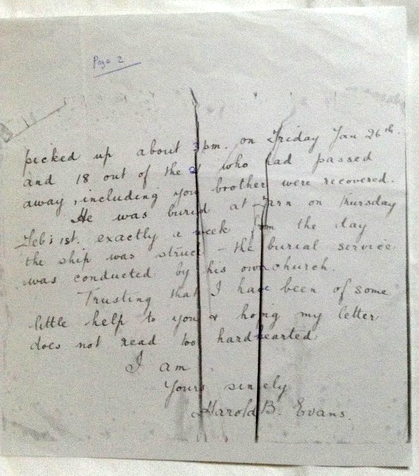 Page 2
picked up about 3pm. on Friday Jan 26th.
and 18 out of the who had passed
away, including your brother were recovered.
He was buried at on Thursday
Feb: 1st. exactly a week from the day
the ship was struck - the burial service
was conducted by his own church.
Trusting that I have been of some
little help to you & hoing my letter
does not read too hardhearted
I am
Yours sinely
Harold B. Evans